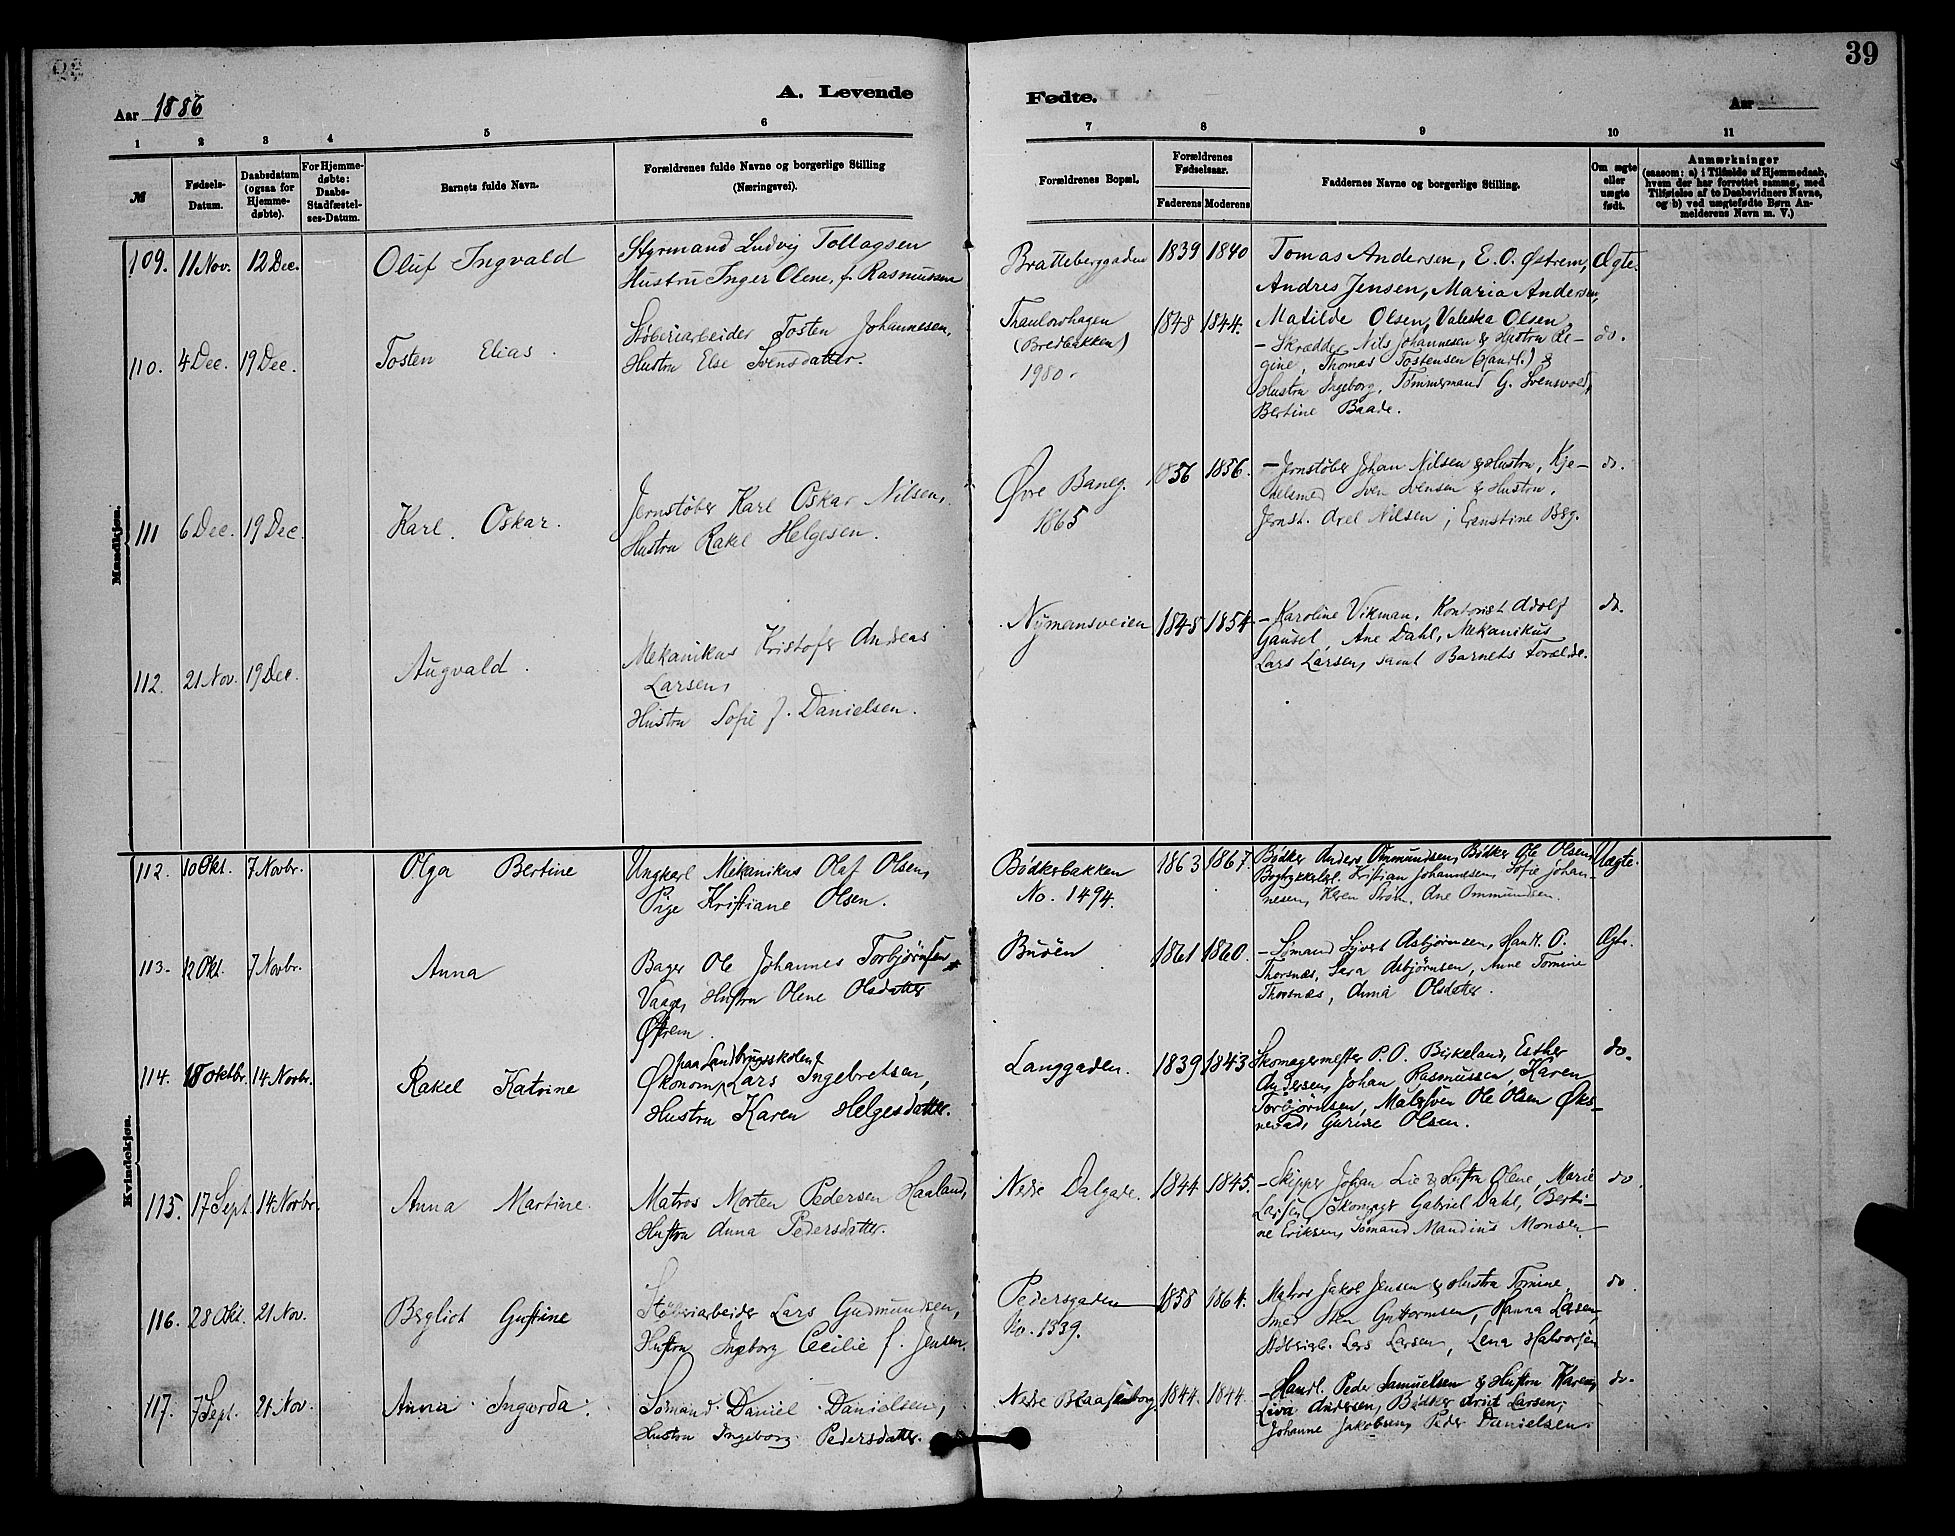 39
Aar 1886
A. Levende
Fødte.
Aar
1 2 3 4 5 6 7 8 9 10 11
№
Fødsels-
Datum.
Daabsdatum
(ogsaa for
Hjemme-
døbte).
For Hjemme-
døbte:
Daabs-
Stadfæstel-
ses-Datum.
Barnets fulde Navn.
Forældrenes fulde Navne og borgerlige Stilling
(Næringsvei).
Forældrenes Bopæl.
Forældrenes
Fødselsaar.
Faderens Moderens
Faddernes Navne og borgerlige Stilling.
Om ægte
eller
uægte
født.
Anmærkninger
(saasom: a) i Tilfælde af Hjemmedaab,
hvem der har forrettet samme, med
Tilføielse af to Daabsvidners Navne,
og b) ved uægtefødte Børn An-
melderens Navn m. V.)
Mandkjøn.
109. 11 Nov. 12 Dec. Oluf Ingvald
Styrmand Ludvig Tollagsen
Hustru Inger Olene, f. Rasmussen
Bratteberggaden 1839 1840
Tomas Andersen, E. O. Østrem,
Andres Jensen, Maria Andersen,
Matilde Olsen, Valeska Olsen
Ægte.
110. 4 Dec. 19 Dec. Tosten Elias.
Støberiarbeider Tosten Johannesen,
Hustru Else Svensdatter.
Thaulowhagen
(Bredbakken)
1980.
1848 1844.
- Skrædder Nils Johannesen & Hustru Re-
gine, Thomas Tostensen (Handl.) &
Hustru Ingeborg, Tømmermand G. Svensvold,
Bertine Baade.
do.
111 6 Dec. 19 Dec. Karl Oskar.
Jernstøber Karl Oskar Nilsen,
Hustru Rakel Helgesen.
Øvre Baneg.
1865
1856 1856.
- Jernstøber Johan Nilsen & Hustru, Kje-
delsmed Sven Svensen & Hustru,
Jernst. Axel Nilsen, Ernstine Berg.
do.
112. 21 Nov. 19 Dec. Augvald.
Mekanikus Kristofer Andreas
Larsen,
Hustru Sofie f. Danielsen.
Nymansveien 1848 1854.
- Karoline Vikman, Kontorist Adolf
Gausel, Ane Dahl, Mekanikus
Lars Larsen, samt Barnets Forældre.
do.
Kvindekjøn.
112. 10 Okt. 7 Novbr. Olga Bertine
Ungkarl Mekanikus Olaf Olsen,
Pige Kristiane Olsen.
Bødkerbakken
No. 1494.
1863 1867.
Bødker Anders Ommundsen, Bødker Ole Olsen,
Bogtrykkerl. Kristian Johannesen, Sofie Johan-
nesen, Karen Strøm, Ane Ommundsen.
Uægte.
113. 12 Okt. 7 Novbr. Anna
Bager Ole Johannes Torbjørnsen
Vaage, Hustru Olene Olsdatter
Østrem.
Buøen 1861 1860.
- Sømand Sivert Asbjørnsen, Handl. O.
Thorsnæs, Sara Asbjørnsen, Anne Tomine
Thorsnæs, Anna Olsdatter.
Ægte.
114. 18 Oktbr. 14 Novbr. Rakel Katrine
paa Landbrugsskolen
Økonom, Lars Ingebretsen,
Hustru Karen Helgesdatter.
Langgaden. 1839 1843
Skomagermester P. O. Birkeland, Esther
Andersen, Johan Rasmussen, Karen
Torbjørnsen, Ole Olsen Øks-
nevad, Gurine Olsen.
do.
115. 17 Sept. 14 Novbr. Anna Martine.
Matros Morten Pedersen Haaland,
Hustru Anna Pedersdatter.
Nedre Dalgade. 1844. 1845.
- Skipper Johan Lie & Hustru Olene, Marie
Larsen, Skomager Gabriel Dahl, Berti-
ne Eriksen, Sømand Mandius Monsen
do.
116. 28 Okt. 21 Nov. Bergliot Gustine
Støberiarbeider Lars Gudmundsen,
Hustru Ingeborg Cecilie f. Jensen.
Pedersgaden
No. 1339.
1858 1864.
Matros Jakob Jensen & Hustru Tomine,
Smed Sten Guttormsen, Hanna Larsen,
Støberiarb. Lars Larsen, Lena Halvorsen
do.
117. 7 Sept. 21 Nov. Anna Ingarda.
Sømand Daniel Danielsen,
Hustru Ingeborg Pedersdatter.
Nedre Blaasenborg. 1844. 1844.
- Handl. Peder Samuelsen & Hustru Karen,
Lina Andersen, Bødker Arnt Larsen,
Johanne Jakobsen, Peder Danielsen.
do.